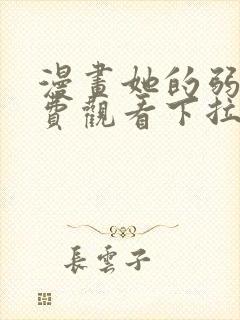 漫畫她的弱
費觀看下拉
長雲子